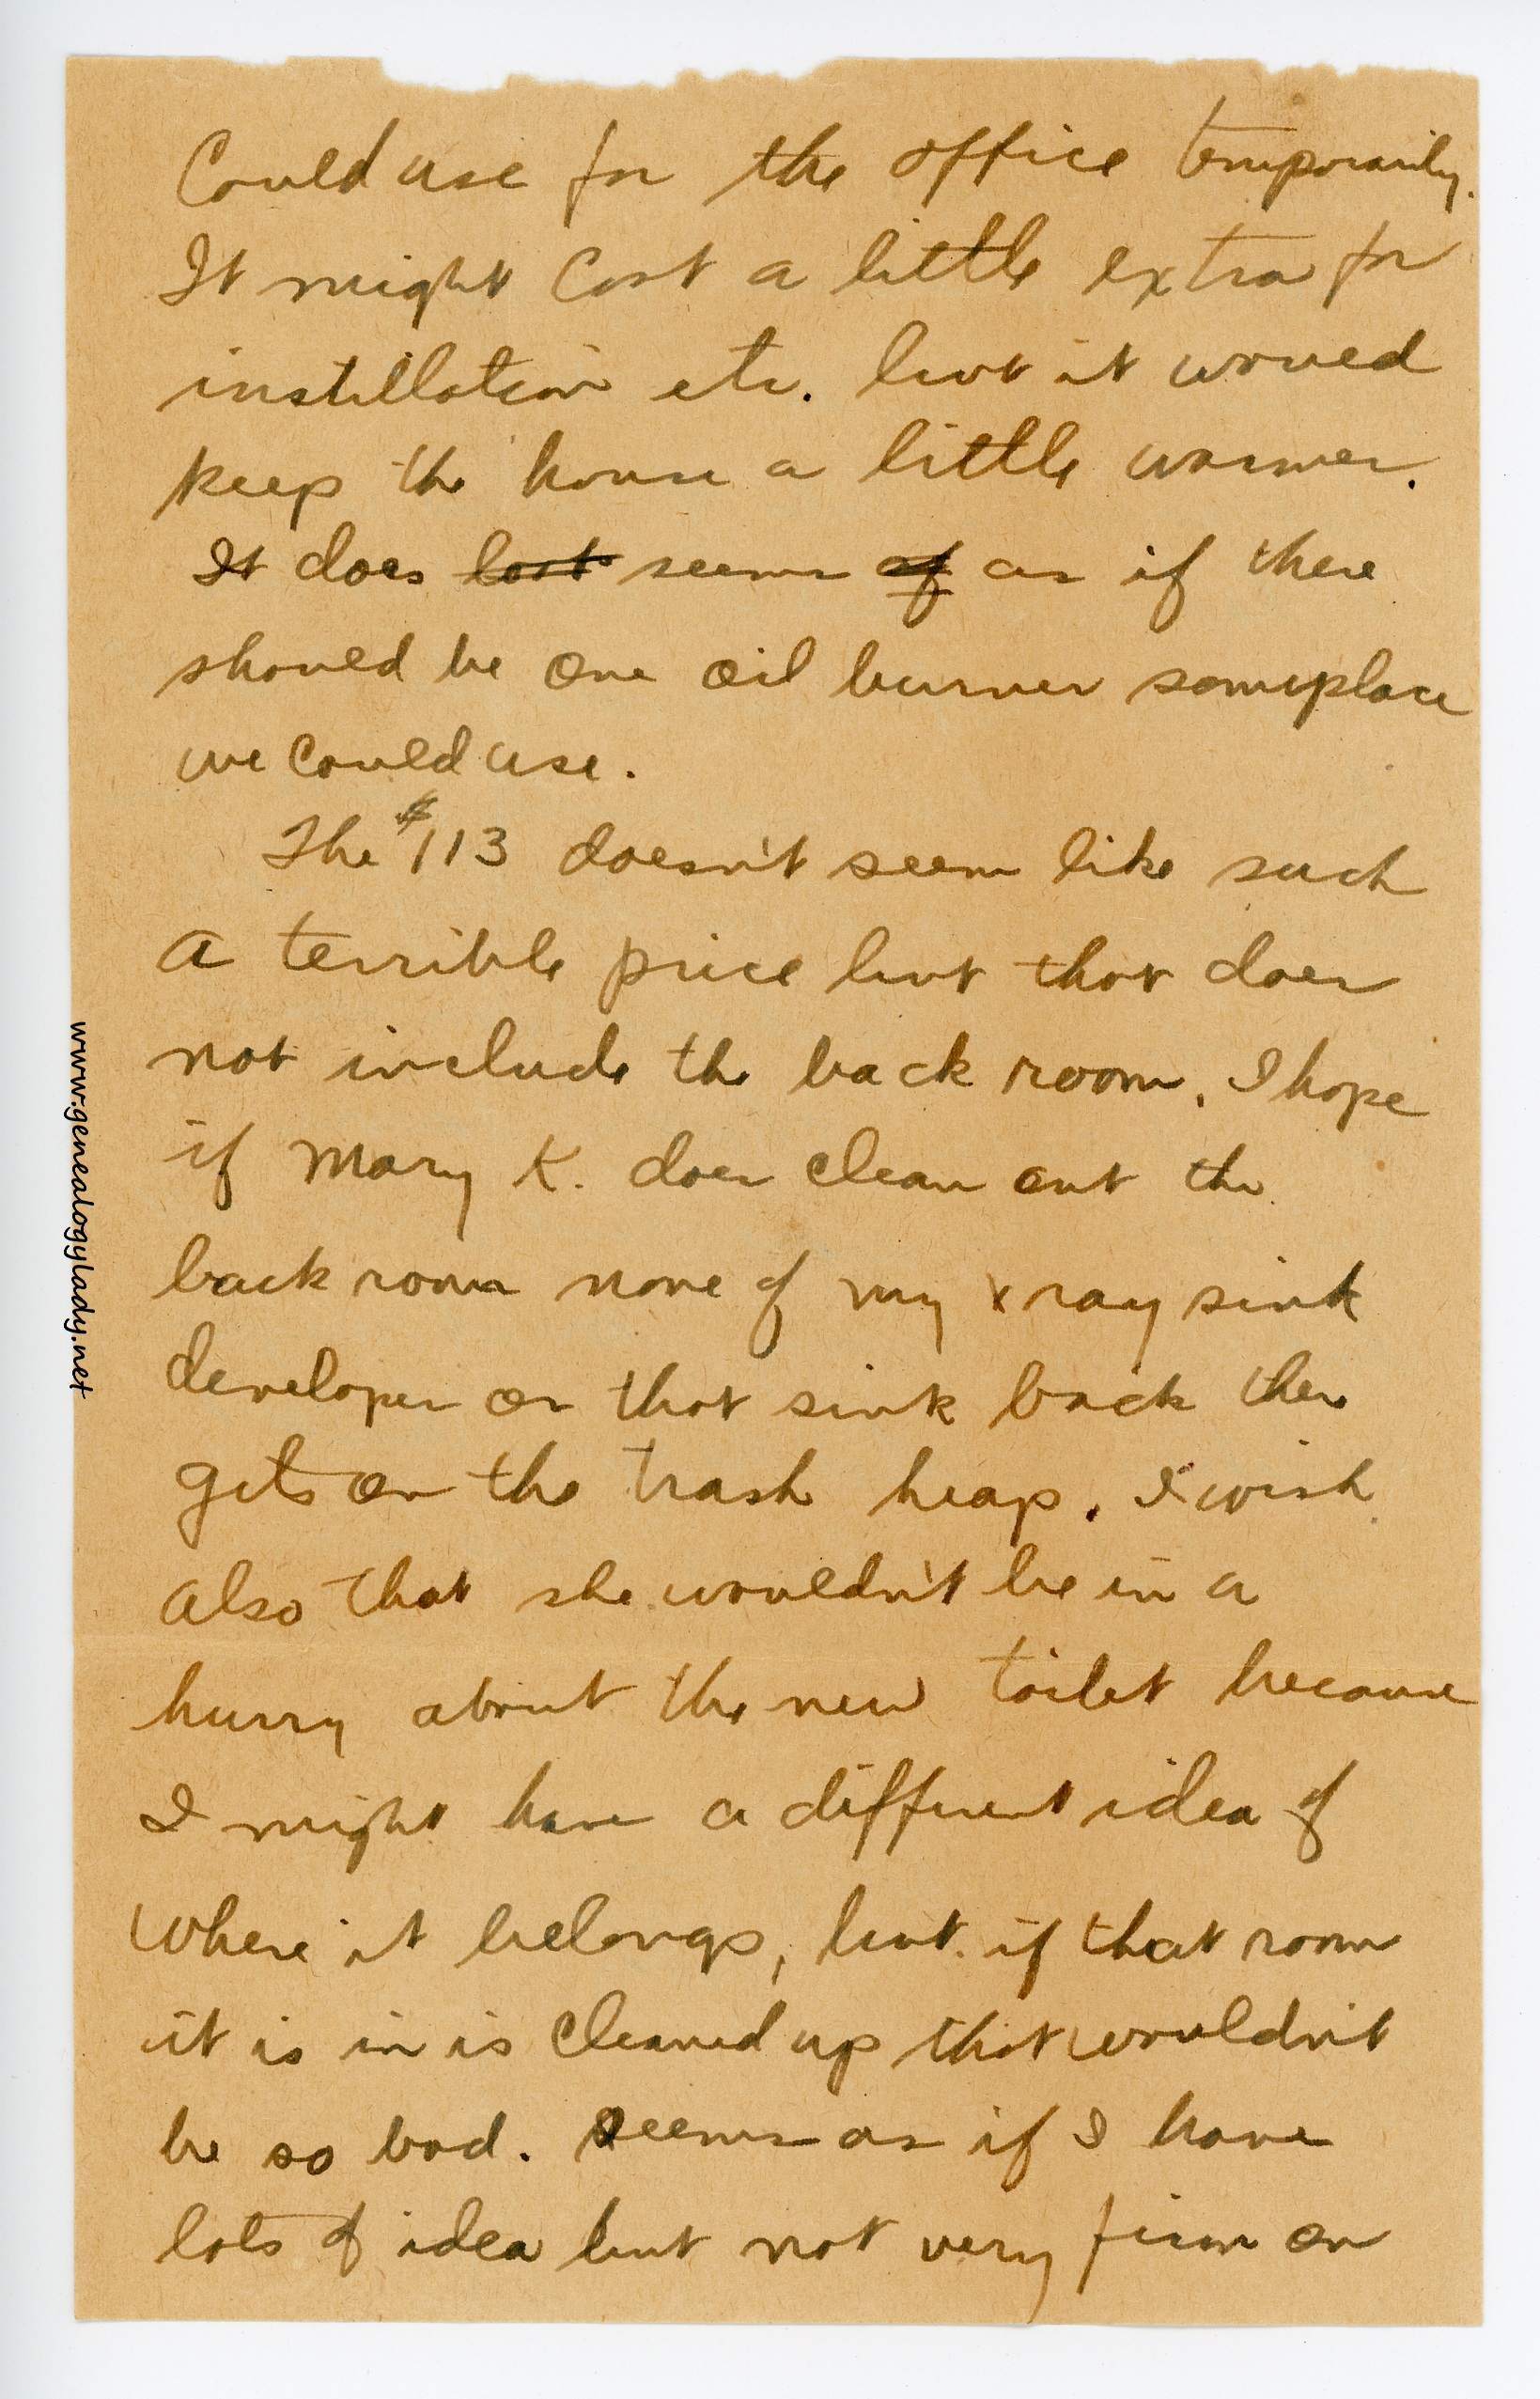 Could use for the office temporarily.
It might cost a little extra for
instillation etc. but it would
keep the house a little warmer.
It does lost seems of as if there
should be one oil burner someplace
we could use.
The $113 doesn't seem like such
a terrible price but that does
not include the back room. I hope
if Mary K. does clean out the
back room none of my x ray sink
developer or that sink back there
gets on the trash heap. I wish
also that she wouldn't be in a
hurry about the new toilet because
I might have a different idea of
where it belongs, but if that room
it is in is cleaned up that wouldn't
be so bad. Seems as if I have
lots of idea but not very firm on
www.genealogylady.net